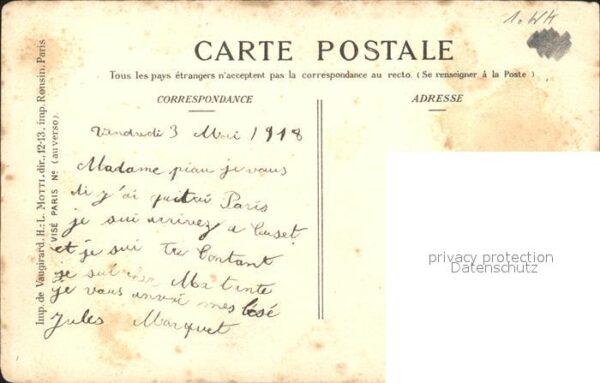 1. WK
CARTE POSTALE
Tous les pays étrangers n'acceptent pas la correspondance au recto. (Se renseigner à la Poste)
CORRESPONDANCE
ADRESSE
Imp. de Vaugirard, H.-L. MOTTI, dir., 12-13, imp. Ronsin, Paris
VISÉ PARIS No (au verso).
Vandredi 3 Mai 1918
Madame piau je vous
di j'ai quitui Paris
je sui arrivez a
et je sui tre Contant
je Ma tante
je vous anvoi mes
Jules Marquet
privacy protection
Datenschutz